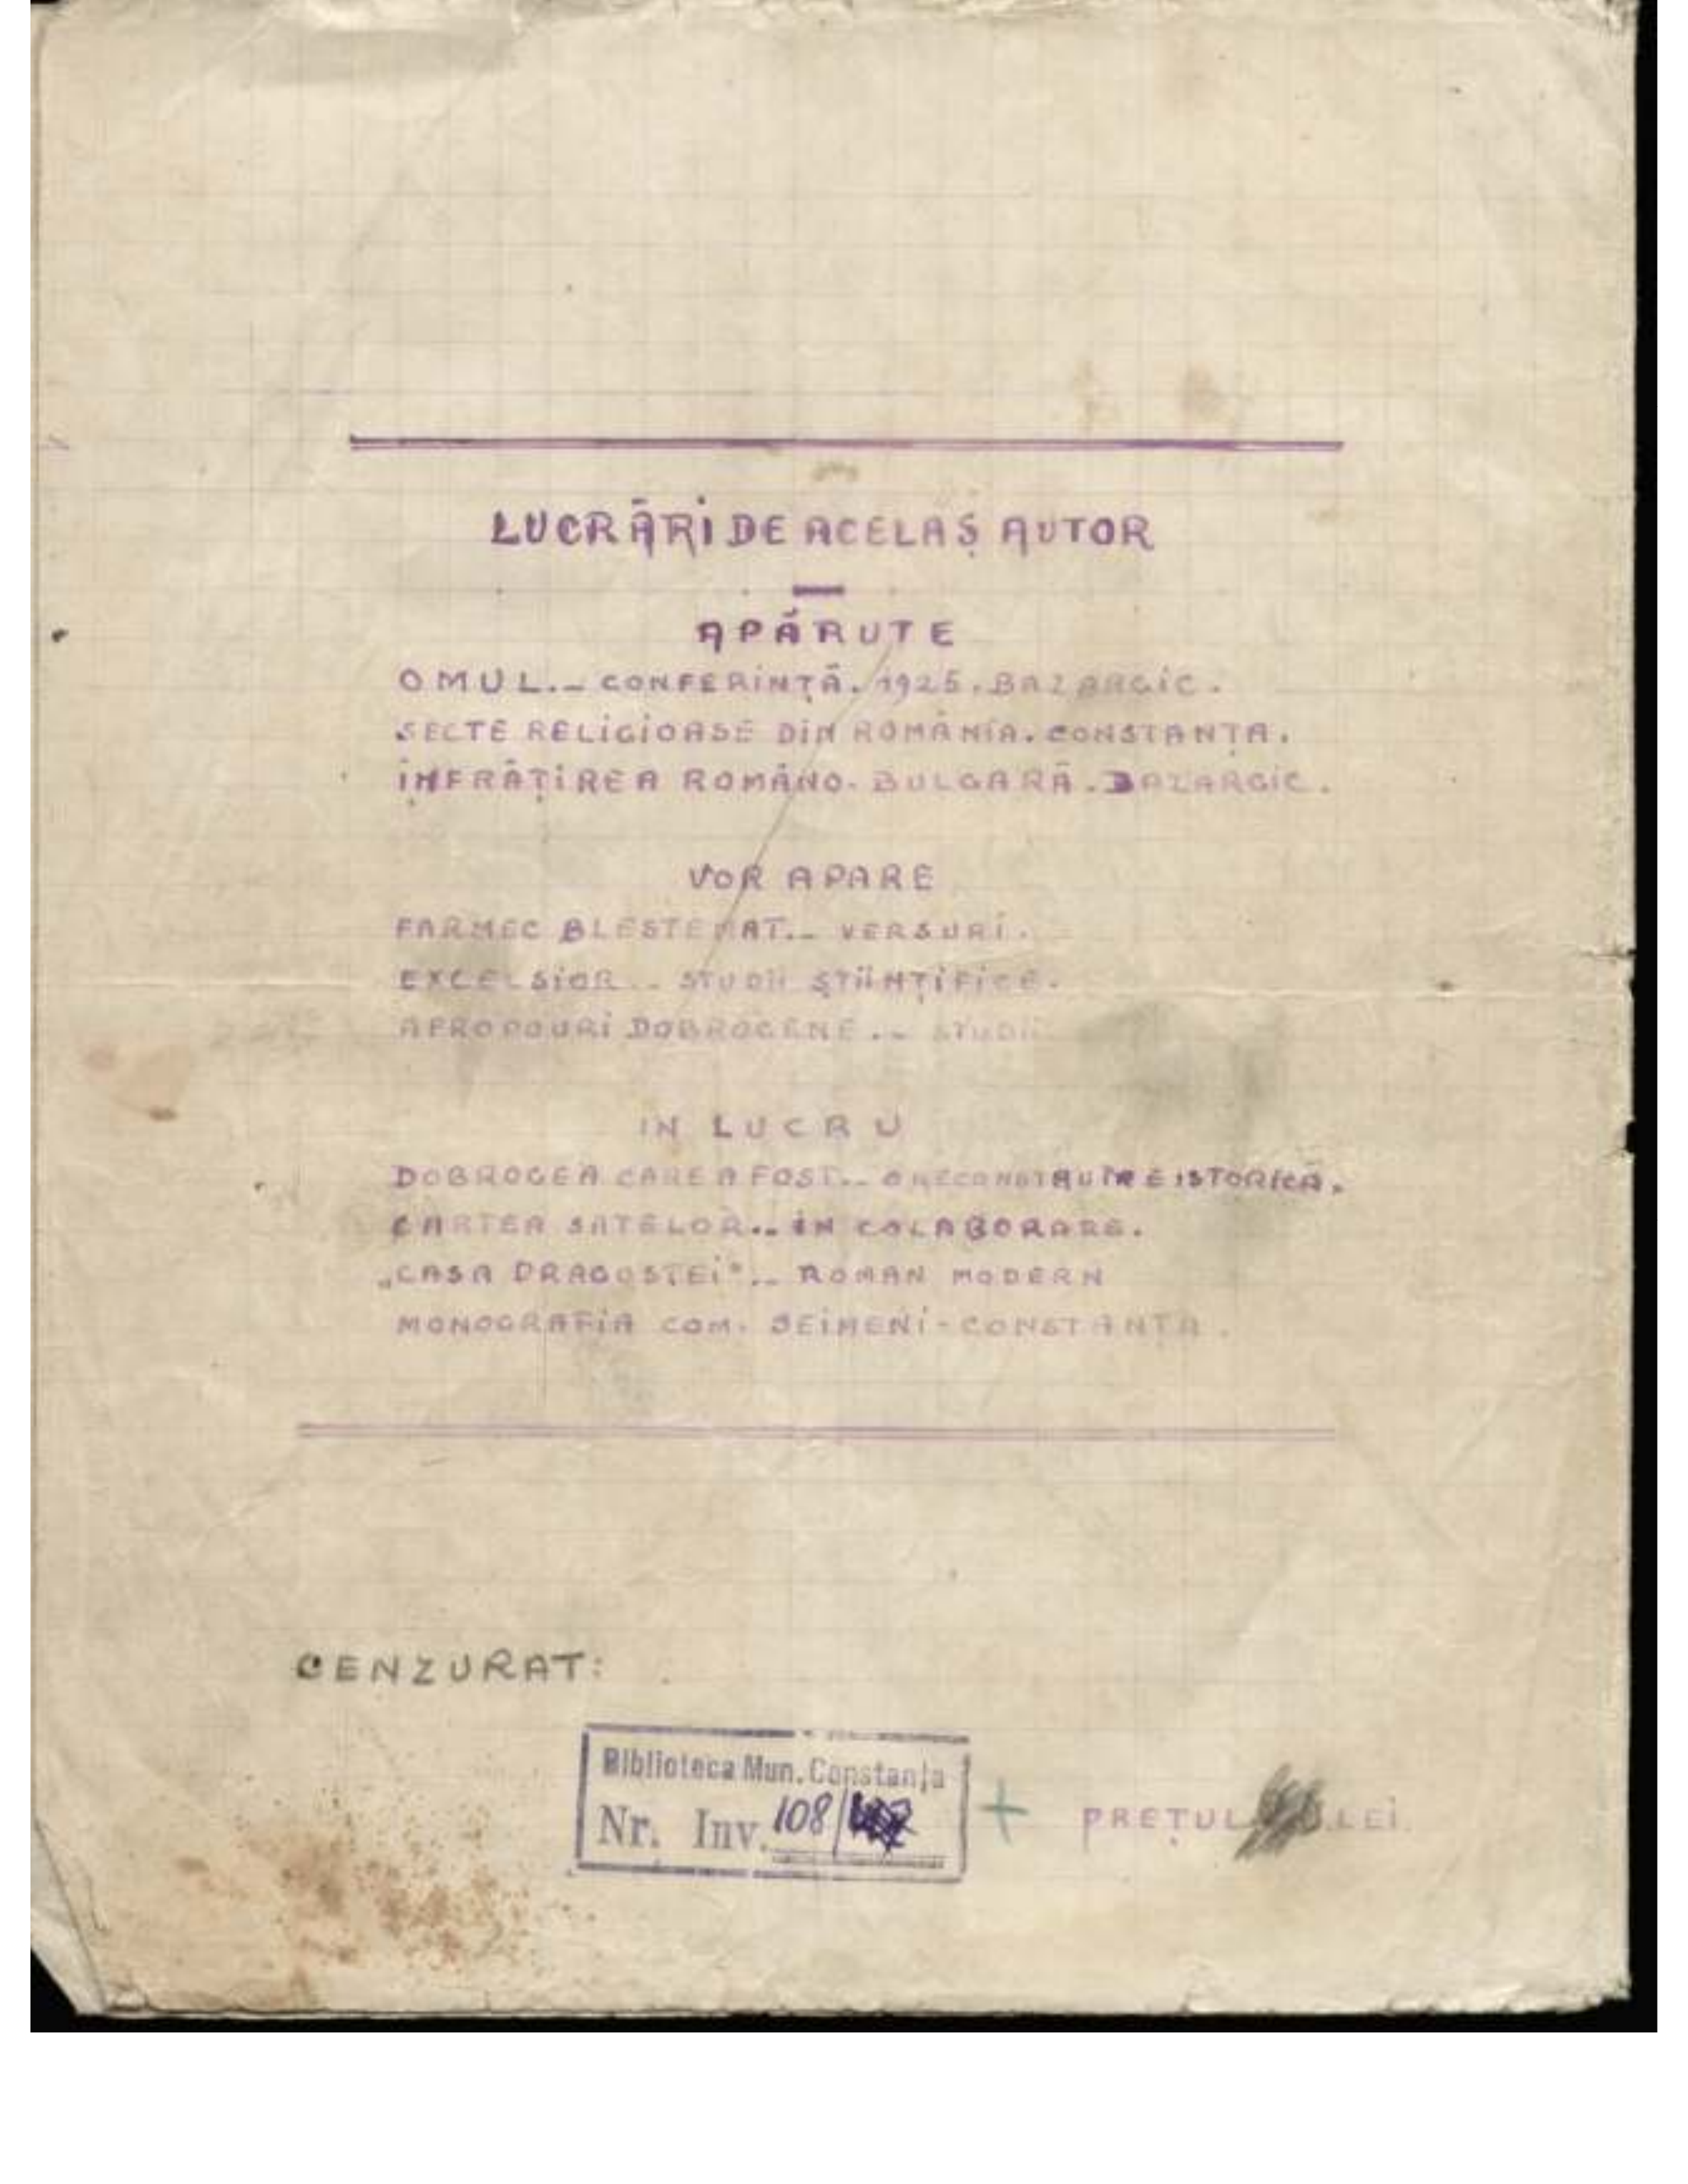 LUCRĂRI DE ACELAȘ AUTOR
APĂRUTE
OMUL.– CONFERINȚĂ. 1925. BAZARGIC.
SECTE RELIGIOASE DIN ROMÂNIA. CONSTANȚA.
ÎNFRĂȚIREA ROMÂNO-BULGARĂ. BAZARGIC.
VOR APARE
FARMEC BLESTEMAT.– VERSURI.
EXCELSIOR.– STUDII ȘTIINȚIFICE.
APROPOURI DOBROGENE.– STUDII
IN LUCRU
DOBROGEA CARE A FOST.– O RECONSTRUIRE ISTORICĂ.
CARTEA SATELOR.– ÎN COLABORARE.
„CASA DRAGOSTEI".– ROMAN MODERN
MONOGRAFIA COM. SEIMENI-CONSTANȚA.
CENZURAT:
Biblioteca Mun. Constanța
Nr. Inv. 108/
+ PREȚUL LEI.